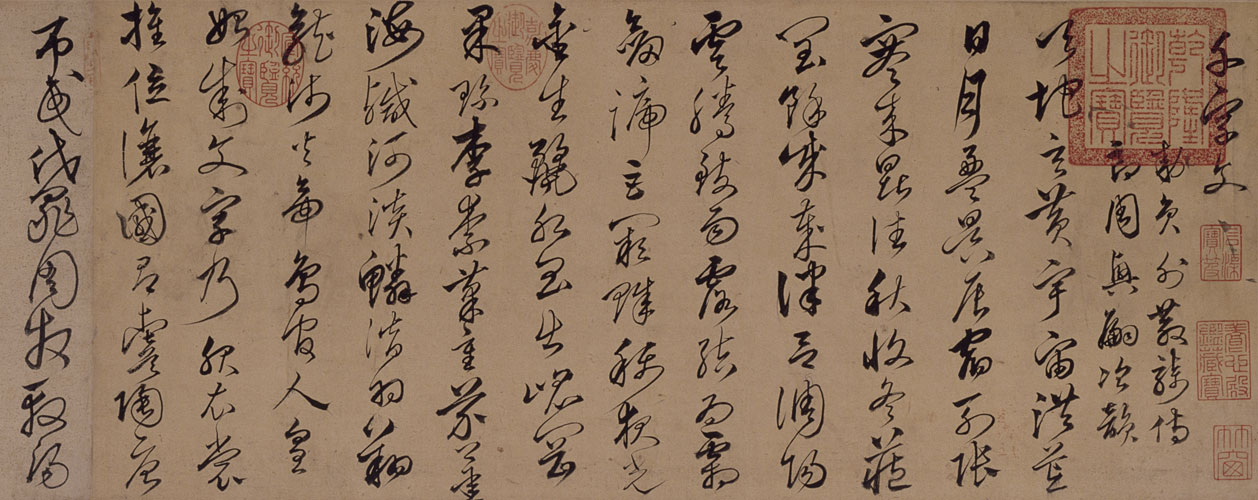 千字文
敕員外散騎侍
郎周興嗣次韻
天地玄黃宇宙洪荒
日月盈昃辰宿列張
寒來暑往秋收冬藏
閏餘成歲律呂調陽
雲騰致雨露結為霜
劒號巨闕珠稱夜光
金生麗水玉出崐岡
果珍李柰菜重芥薑
海鹹河淡鱗潛羽翔
龍師火帝鳥官人皇
始制文字乃服衣裳
推位讓國有虞陶唐
弔民伐罪周發殷湯
乾隆御覽之寶
石渠寶笈
養心殿鑑藏寶
嘉慶御覽之寶